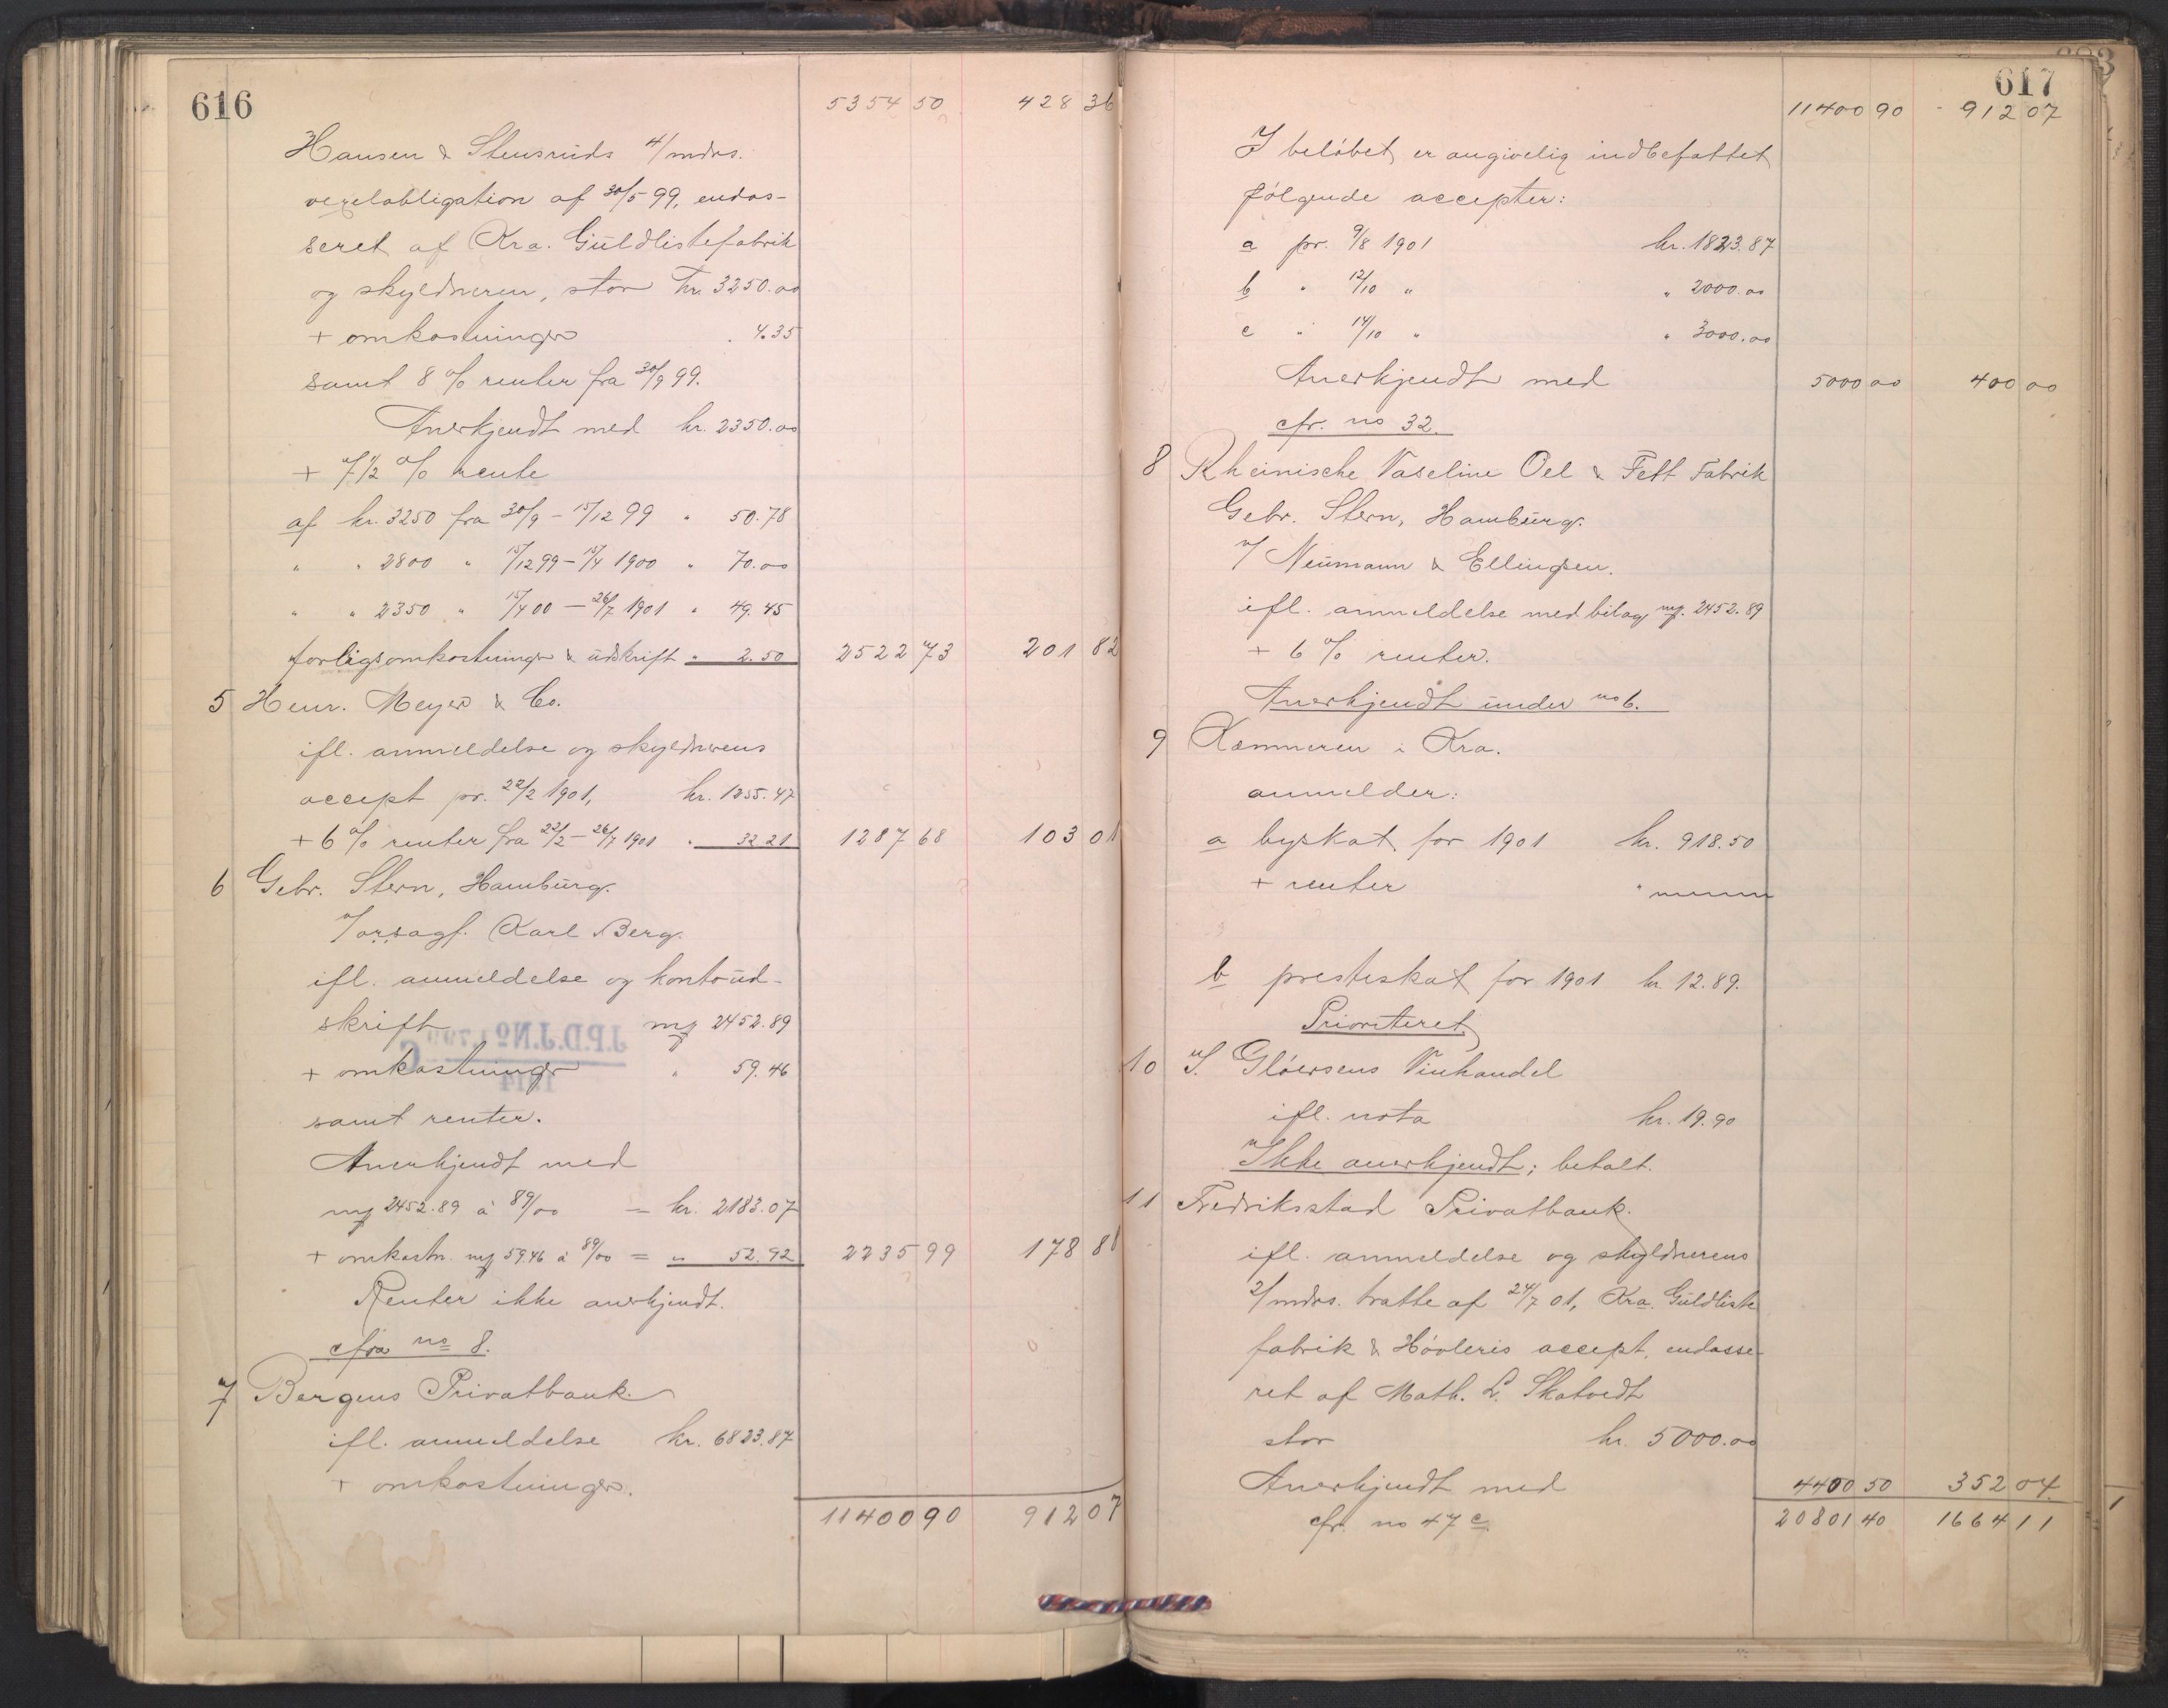 616
5354 50 428 36
Hansen & Stensruds 4/mdrs.
vexelobligation af 30/5 99, endos-
seret af Kra. Guldlistefabrik
og skyldneren, stor kr. 3250.00
+ omkostninger " 4.35
samt 8 % renter fra 30/9 99.
Anerkjendt med kr. 2350.00
+ 7 1/2 % rente
af kr. 3250 fra 30/9 - 15/12 99 " 50.78
" " 2800 " 15/12 99 - 15/4 1900 " 70.00
" " 2350 " 15/4 00 - 26/7 1901 " 49.45
forligsomkostninger & udskrift " 2.50 2522 73 201 82
5 Henr. Meyer & Co.
ifl. anmeldelse og skyldnerens
accept pr. 22/2 1901, kr. 1255.47
+ 6 % renter fra 22/2 - 26/7 1901 " 32.21 1287 68 103 01
6 Gebr. Stern, Hamburg.
v/ orsagf. Karl Berg.
ifl. anmeldelse og kontoud-
skrift mg 2452.89
+ omkostninger " 59.46
samt renter.
Anerkjendt med
mg 2452.89 à 89/00 = kr. 2183.07
+ omkostn. mg 59.46 à 89/00 = " 52.92 2235 99 178 88
Renter ikke anerkjendt.
cfr no 8.
7 Bergens Privatbank.
ifl. anmeldelse kr. 6823.87
+ omkostninger.
11400 90 912 07
617
11400 90 912 07
I beløbet er angivelig indbefattet
følgende accepter:
a pr. 9/8 1901 kr. 1823.87
b " 12/10 " " 2000.00
c " 14/10 " " 3000.00
Anerkjendt med 5000 00 400 00
cfr. no 32.
8 Rheinische Vaseline Oel & Fett Fabrik
Gebr. Stern, Hamburg.
v/ Neumann & Ellingsen.
ifl. anmeldelse med bilag mg. 2452.89
+ 6 % renter.
Anerkjendt under no 6.
9 Kæmneren i Kra.
anmelder:
a byskat for 1901 kr. 918.50
+ renter "
b presteskat for 1901 kr 12.89.
Prioriteret
10 J. Gløersens Vinhandel
ifl. nota kr. 19.90
Ikke anerkjendt; betalt.
11 Fredriksstad Privatbank.
ifl. anmeldelse og skyldnerens
2/mdrs. tratte af 24/7 01, Kra. Guldliste
fabrik & Høvleris accept, endosse-
ret af Math. L. Skatvedt
stor kr. 5000.00
Anerkjendt med 4400 50 352 04
cfr. no 47 c. 20801 40 1664 11